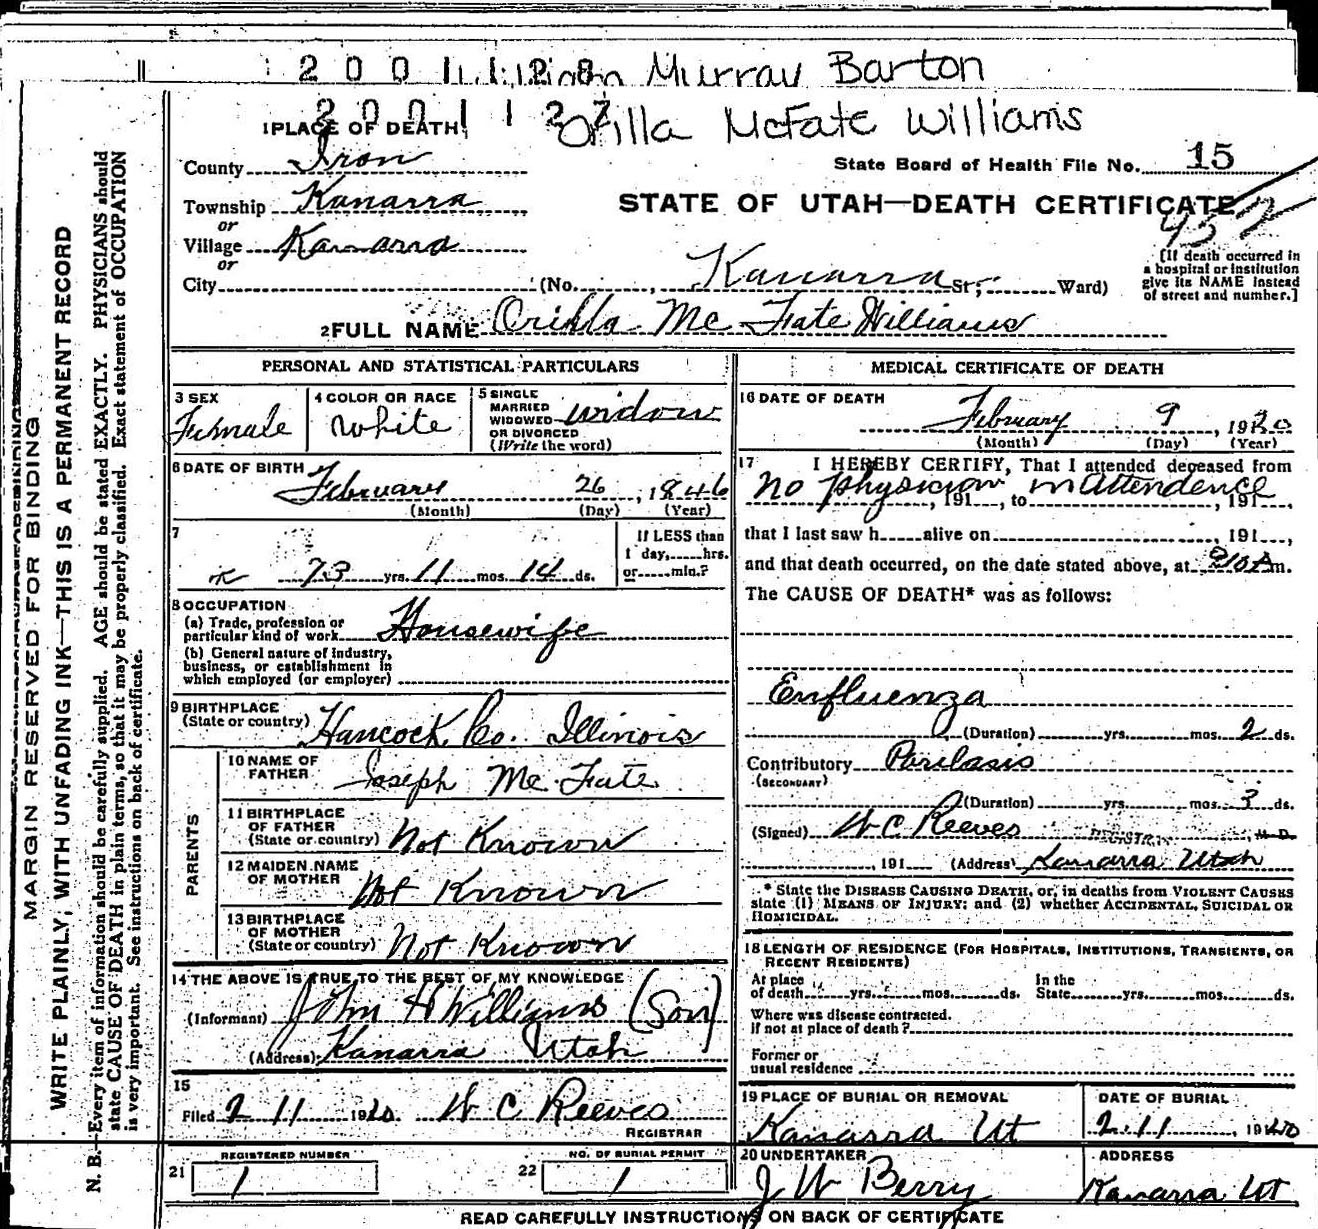 2001128 Murray Barton
2001127
Orilla McFate Williams
1 PLACE OF DEATH
County Iron
State Board of Health File No. 15
Township Kanarra
STATE OF UTAH—DEATH CERTIFICATE
452
or
Village Kanarra
or
City (No. , Kanarra St; Ward)
[If death occurred in
a hospital or institution
give its NAME instead
of street and number.]
2 FULL NAME Orilla Mc Fate Williams
PERSONAL AND STATISTICAL PARTICULARS
3 SEX
Female
4 COLOR OR RACE
White
5 SINGLE
MARRIED
WIDOWED
OR DIVORCED
(Write the word)
widow
6 DATE OF BIRTH
February 26, 1846
(Month) (Day) (Year)
7
73 yrs. 11 mos. 14 ds.
If LESS than
1 day, hrs.
or min.?
8 OCCUPATION
(a) Trade, profession or
particular kind of work Housewife
(b) General nature of industry,
business, or establishment in
which employed (or employer)
9 BIRTHPLACE
(State or country) Hancock Co. Illinois
PARENTS
10 NAME OF
FATHER Joseph Mc Fate
11 BIRTHPLACE
OF FATHER
(State or country) Not Known
12 MAIDEN NAME
OF MOTHER Not Known
13 BIRTHPLACE
OF MOTHER
(State or country) Not Known
14 THE ABOVE IS TRUE TO THE BEST OF MY KNOWLEDGE
(Informant) John H Williams (Son)
(Address) Kanarra Utah
15
Filed 2 11 1920 W C Reeves
REGISTRAR
21 REGISTERED NUMBER
1
22 NO. OF BURIAL PERMIT
1
MEDICAL CERTIFICATE OF DEATH
16 DATE OF DEATH
February 9, 1920
(Month) (Day) (Year)
17 I HEREBY CERTIFY, That I attended deceased from
no physician in attendence
, 191 , to , 191 ,
that I last saw h alive on , 191 ,
and that death occurred, on the date stated above, at m.
The CAUSE OF DEATH* was as follows:
Enfluenza
(Duration) yrs. mos. 2 ds.
Contributory Perilasis
(SECONDARY)
(Duration) yrs. mos. 3 ds.
(Signed) W C Reeves REGISTRAR, M. D.
, 191 (Address) Kanarra Utah
* State the DISEASE CAUSING DEATH, or, in deaths from VIOLENT CAUSES
state (1) MEANS OF INJURY; and (2) whether ACCIDENTAL, SUICIDAL OR
HOMICIDAL.
18 LENGTH OF RESIDENCE (FOR HOSPITALS, INSTITUTIONS, TRANSIENTS, OR
RECENT RESIDENTS)
At place
of death yrs. mos. ds. In the
State yrs. mos. ds.
Where was disease contracted,
if not at place of death?
Former or
usual residence
19 PLACE OF BURIAL OR REMOVAL
Kanarra Ut
DATE OF BURIAL
2 11, 1920
20 UNDERTAKER
J W Berry
ADDRESS
Kanarra Ut
READ CAREFULLY INSTRUCTIONS ON BACK OF CERTIFICATE
MARGIN RESERVED FOR BINDING
WRITE PLAINLY, WITH UNFADING INK—THIS IS A PERMANENT RECORD
N. B.—Every item of information should be carefully supplied. AGE should be stated EXACTLY. PHYSICIANS should
state CAUSE OF DEATH in plain terms, so that it may be properly classified. Exact statement of OCCUPATION
is very important. See instructions on back of certificate.